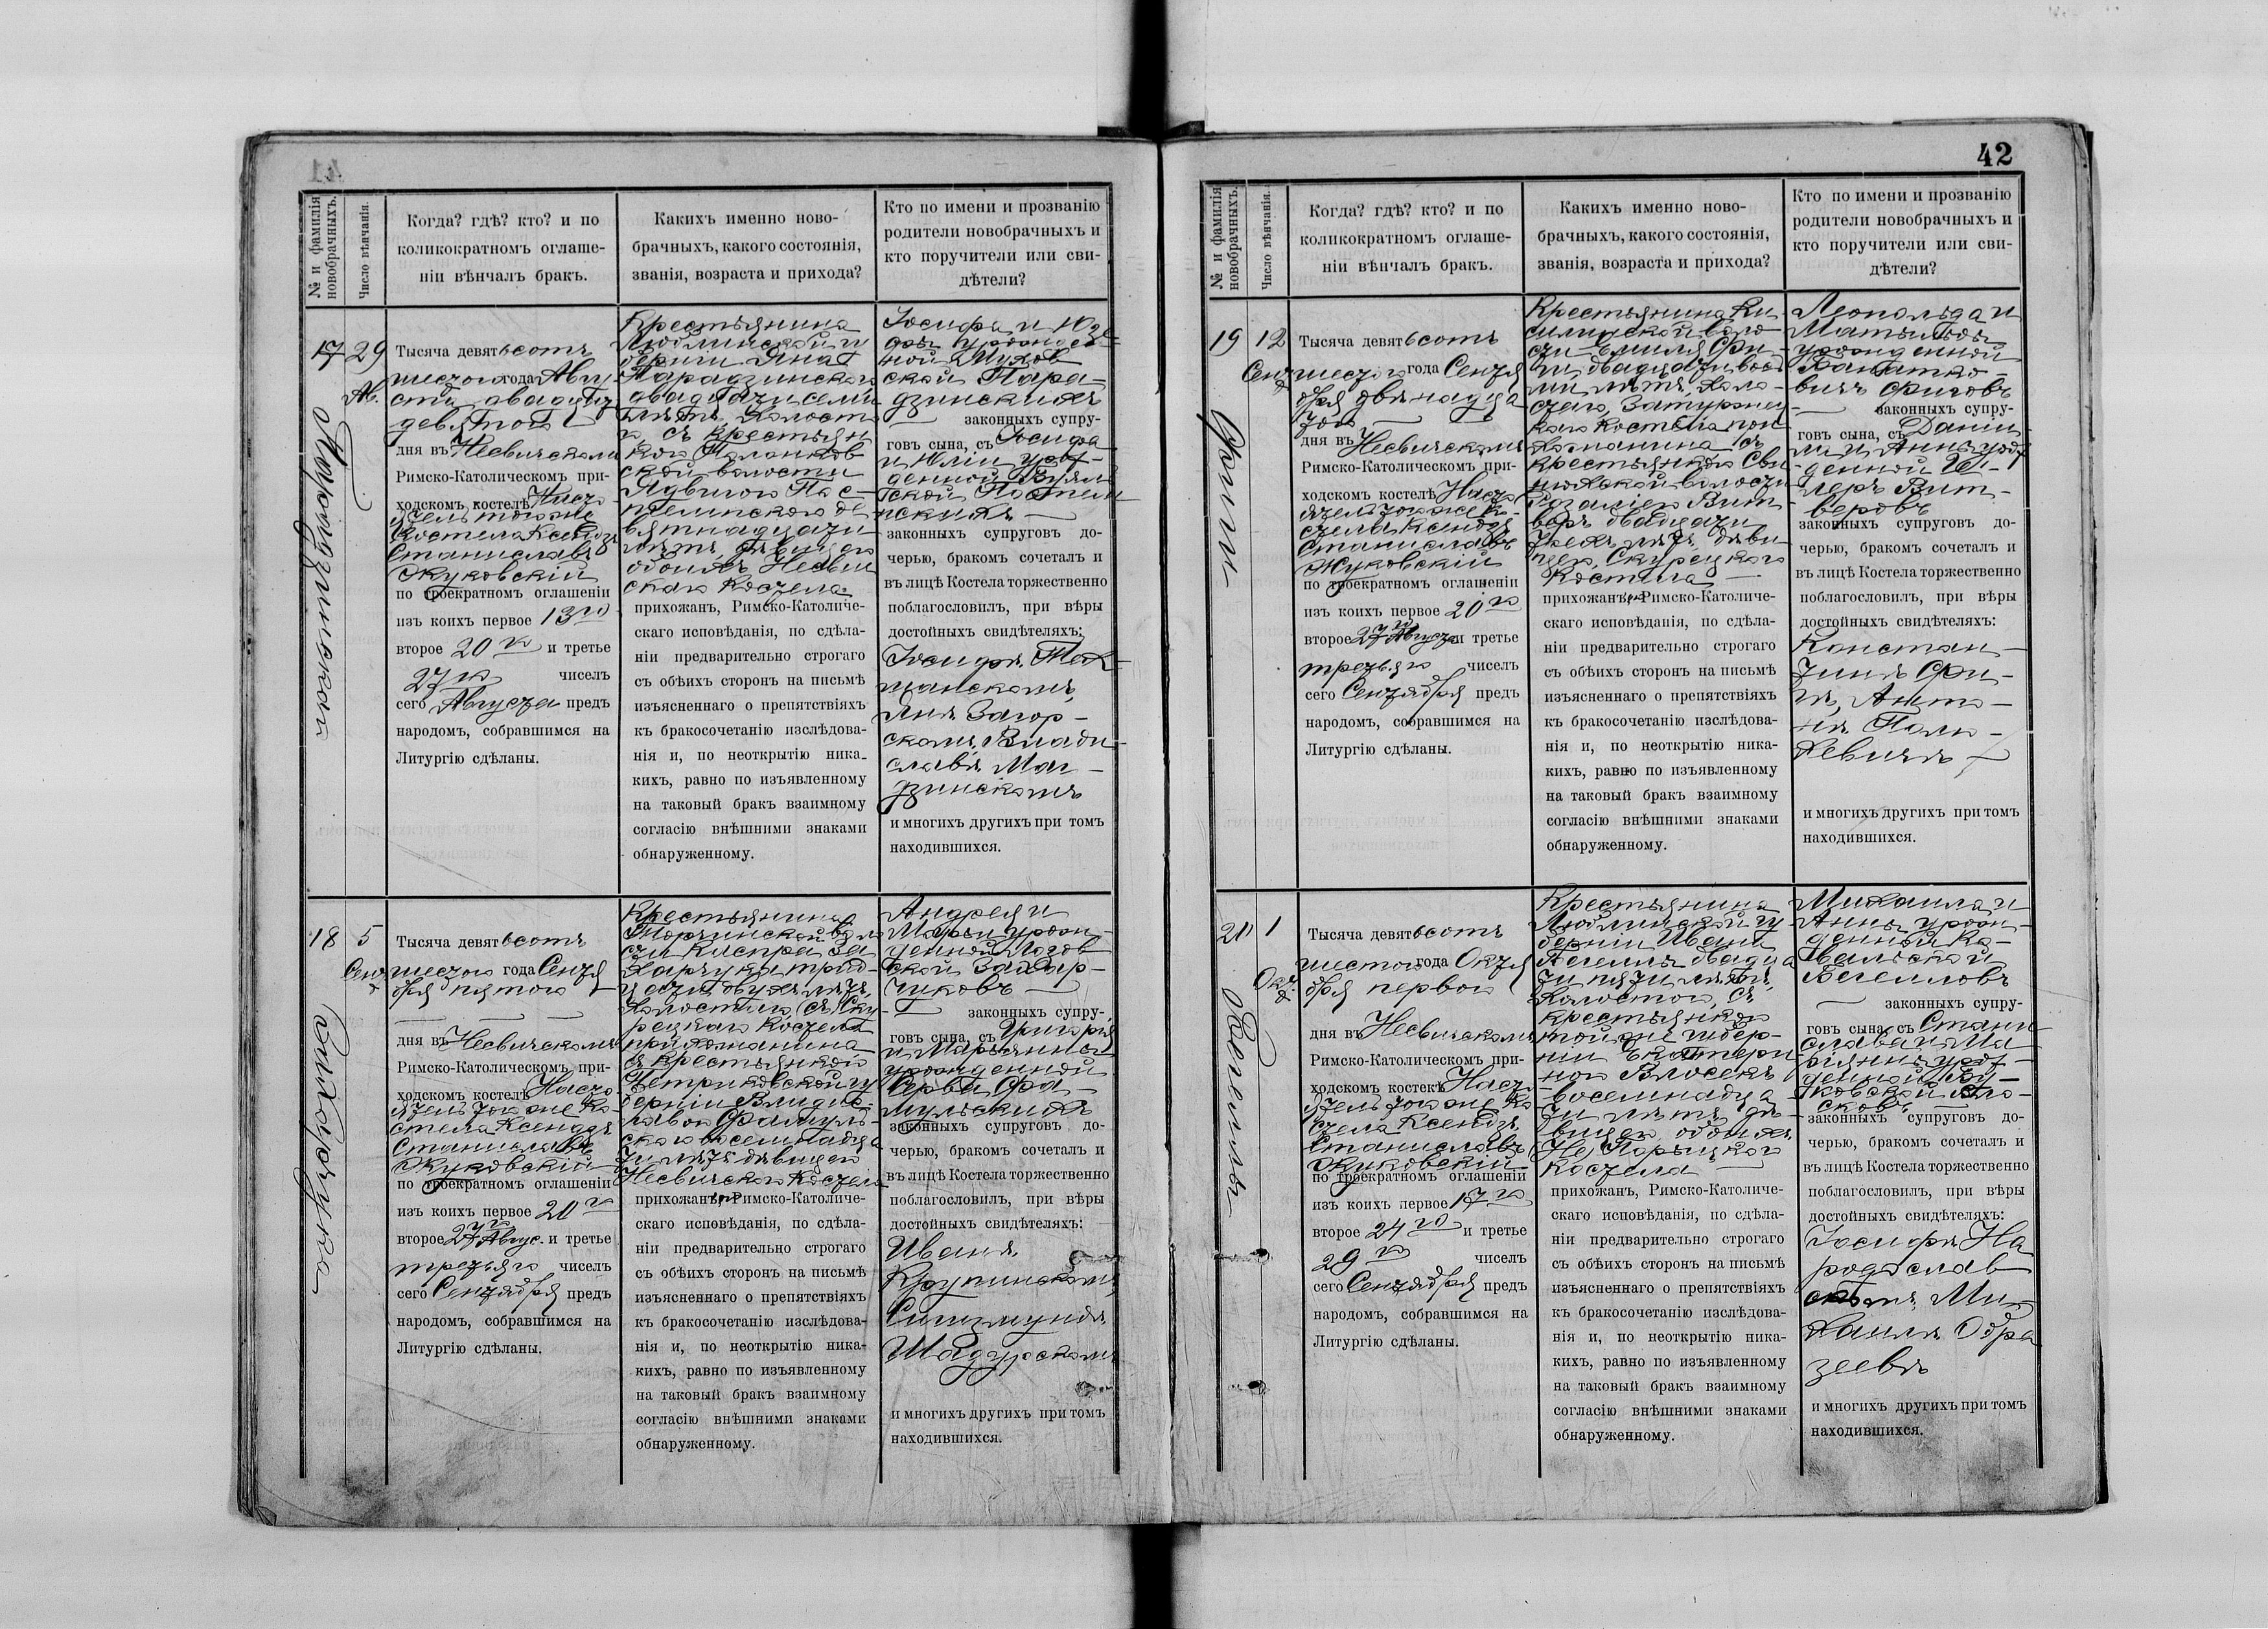 42
№ и фамилія новобрачныхъ.
Число вѣнчанія.
Когда? гдѣ? кто? и по
коликократномъ оглаше-
ніи вѣнчалъ бракъ.
Какихъ именно ново-
брачныхъ, какого состоянія,
званія, возраста и прихода?
Кто по имени и прозванію
родители новобрачныхъ и
кто поручители или сви-
дѣтели?
17
29
Ав.
Тысяча девятьсотъ
шестого года Авгу
ста двадцать
девятого
дня въ Несвичскомъ
Римско-Католическомъ при-
ходскомъ костелѣ Насто
ятель того же
Костела Ксендзъ
Станиславъ
Жуковскій
по троекратномъ оглашеніи
изъ коихъ первое 13го
второе 20го и третье
27го чиселъ
сего Августа предъ
народомъ, собравшимся на
Литургію сдѣланы.
Крестьянина
Люблинской гу
берніи Яна
Парадзинскаго
двадцати семи
лѣтъ, холост
съ крестьян
кою
ской волости
вятнадцати
лѣтъ, дѣвицею
обоихъ Несвич
скаго Костела
прихожанъ, Римско-Католиче-
скаго исповѣданія, по сдѣла-
ніи предварительно строгаго
съ обѣихъ сторонъ на письмѣ
изъясненнаго о препятствіяхъ
къ бракосочетанію изслѣдова-
нія и, по неоткрытію ника-
кихъ, равно по изъявленному
на таковый бракъ взаимному
согласію внѣшними знаками
обнаруженному.
Іосифа и Юзе
фы урожден
ной
ской Пара-
дзинскихъ
законныхъ супру-
говъ сына, съ Іосифа
и Юліи урож-
денной
законныхъ супруговъ до-
черью, бракомъ сочеталъ и
въ лицѣ Костела торжественно
поблагословилъ, при вѣры
достойныхъ свидѣтеляхъ:
Іосифѣ
Янѣ Загор-
скомъ, Влади-
славѣ Маг-
дзинскомъ
и многихъ другихъ при томъ
находившихся.
18
5
Сент
Захарчука
Тысяча девятьсотъ
шестого года Сентя
бря пятого
дня въ Несвичскомъ
Римско-Католическомъ при-
ходскомъ костелѣ Насто
ятель того же Ко-
стела Ксендзъ
Станиславъ
Жуковскій
по троекратномъ оглашеніи
изъ коихъ первое 20го
второе 27го Авгус. и третье
третьяго чиселъ
сего Сентября предъ
народомъ, собравшимся на
Литургію сдѣланы.
Крестьянина
Торчинской воло
сти Каспра За
харчука трид-
цати двухъ лѣтъ,
холостого, Ску
рецкаго Костела
прихожанина
съ крестьянкою
Петроковской гу
берніи Владис-
лавою Фамуль
ского восемнадца
ти лѣтъ дѣвицею
Несвичского Костела
прихожан Римско-Католиче-
скаго исповѣданія, по сдѣла-
ніи предварительно строгаго
съ обѣихъ сторонъ на письмѣ
изъясненнаго о препятствіяхъ
къ бракосочетанію изслѣдова-
нія и, по неоткрытію ника-
кихъ, равно по изъявленному
на таковый бракъ взаимному
согласію внѣшними знаками
обнаруженному.
Андрея и
Маріи урож-
денной
ской Захар-
чуковъ
законныхъ супру-
говъ сына, съ Григорія
и Маріянны
урожденной
Фа-
мульскихъ
законныхъ супруговъ до-
черью, бракомъ сочеталъ и
въ лицѣ Костела торжественно
поблагословилъ, при вѣры
достойныхъ свидѣтеляхъ:
Иванѣ
Крупинскомъ
Сигизмундѣ
Шадурскомъ
и многихъ другихъ при томъ
находившихся.
№ и фамилія новобрачныхъ.
Число вѣнчанія.
Когда? гдѣ? кто? и по
коликократномъ оглаше-
ніи вѣнчалъ бракъ.
Какихъ именно ново-
брачныхъ, какого состоянія,
званія, возраста и прихода?
Кто по имени и прозванію
родители новобрачныхъ и
кто поручители или сви-
дѣтели?
19
12
Сент
Тысяча девятьсотъ
шестого года Сентя
бря двѣнадца
того
дня въ Несвичскомъ
Римско-Католическомъ при-
ходскомъ костелѣ Насто
ятель того же Ко-
стела Ксендзъ
Станиславъ
Жуковскій
по троекратномъ оглашеніи
изъ коихъ первое 20го
второе 27го Августа и третье
третьяго чиселъ
сего Сентября предъ
народомъ, собравшимся на
Литургію сдѣланы.
Крестьянина Ки
силинской воло
сти Эмиля Фи-
ги двадцати вось
ми лѣтъ, холо-
стого, Затурнец-
каго Костела при
хожанина съ
крестьянкою Сви
нюхской волости
Розаліею Вит-
веръ двадцати
трехъ лѣтъ, дѣви
цею, Скурецкого
Костела
прихожан Римско-Католиче-
скаго исповѣданія, по сдѣла-
ніи предварительно строгаго
съ обѣихъ сторонъ на письмѣ
изъясненнаго о препятствіяхъ
къ бракосочетанію изслѣдова-
нія и, по неоткрытію ника-
кихъ, равно по изъявленному
на таковый бракъ взаимному
согласію внѣшними знаками
обнаруженному.
Леопольда и
Матильды
урожденной
вичъ Фиговъ
законныхъ супру-
говъ сына, съ Даніи
ла и Анны урож
денной Ги-
леръ Вит-
веровъ
законныхъ супруговъ до-
черью, бракомъ сочеталъ и
въ лицѣ Костела торжественно
поблагословилъ, при вѣры
достойныхъ свидѣтеляхъ:
Констан-
тинѣ Фи-
гѣ, Анто-
нѣ Поль-
хевичѣ
и многихъ другихъ при томъ
находившихся.
21
1
Окт.
Тысяча девятьсотъ
шестого года Октя
бря первого
дня въ Несвичскомъ
Римско-Католическомъ при-
ходскомъ костелѣ Насто
ятель того же Ко
стела Ксендзъ
Станиславъ
Жуковскій
по троекратномъ оглашеніи
изъ коихъ первое 17го
второе 24го и третье
29го чиселъ
сего Сентября предъ
народомъ, собравшимся на
Литургію сдѣланы.
Крестьянина
Люблинской гу
берніи Ивана
двадца
ти пяти лѣтъ,
холостого, съ
крестьянкою
той же губер-
ніи Екатери
ною Влосекъ
восемнадца
ти лѣтъ дѣ
вицею, обоихъ
Порыцкого
Костела
прихожанъ, Римско-Католиче-
скаго исповѣданія, по сдѣла-
ніи предварительно строгаго
съ обѣихъ сторонъ на письмѣ
изъясненнаго о препятствіяхъ
къ бракосочетанію изслѣдова-
нія и, по неоткрытію ника-
кихъ, равно по изъявленному
на таковый бракъ взаимному
согласію внѣшними знаками
обнаруженному.
Михаила и
Анны урож-
денной Ко-
вальской
законныхъ супру-
говъ сына, съ Стани
слава и Ма
ріянны урож-
денной
Вло-
сковъ
законныхъ супруговъ до-
черью, бракомъ сочеталъ и
въ лицѣ Костела торжественно
поблагословилъ, при вѣры
достойныхъ свидѣтеляхъ:
Іосифѣ На
родослав
скомъ, Ми-
хаилѣ Обра
зеевѣ
и многихъ другихъ при томъ
находившихся.